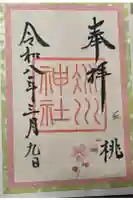 奉拝
桃
神社
令和八年三月九日